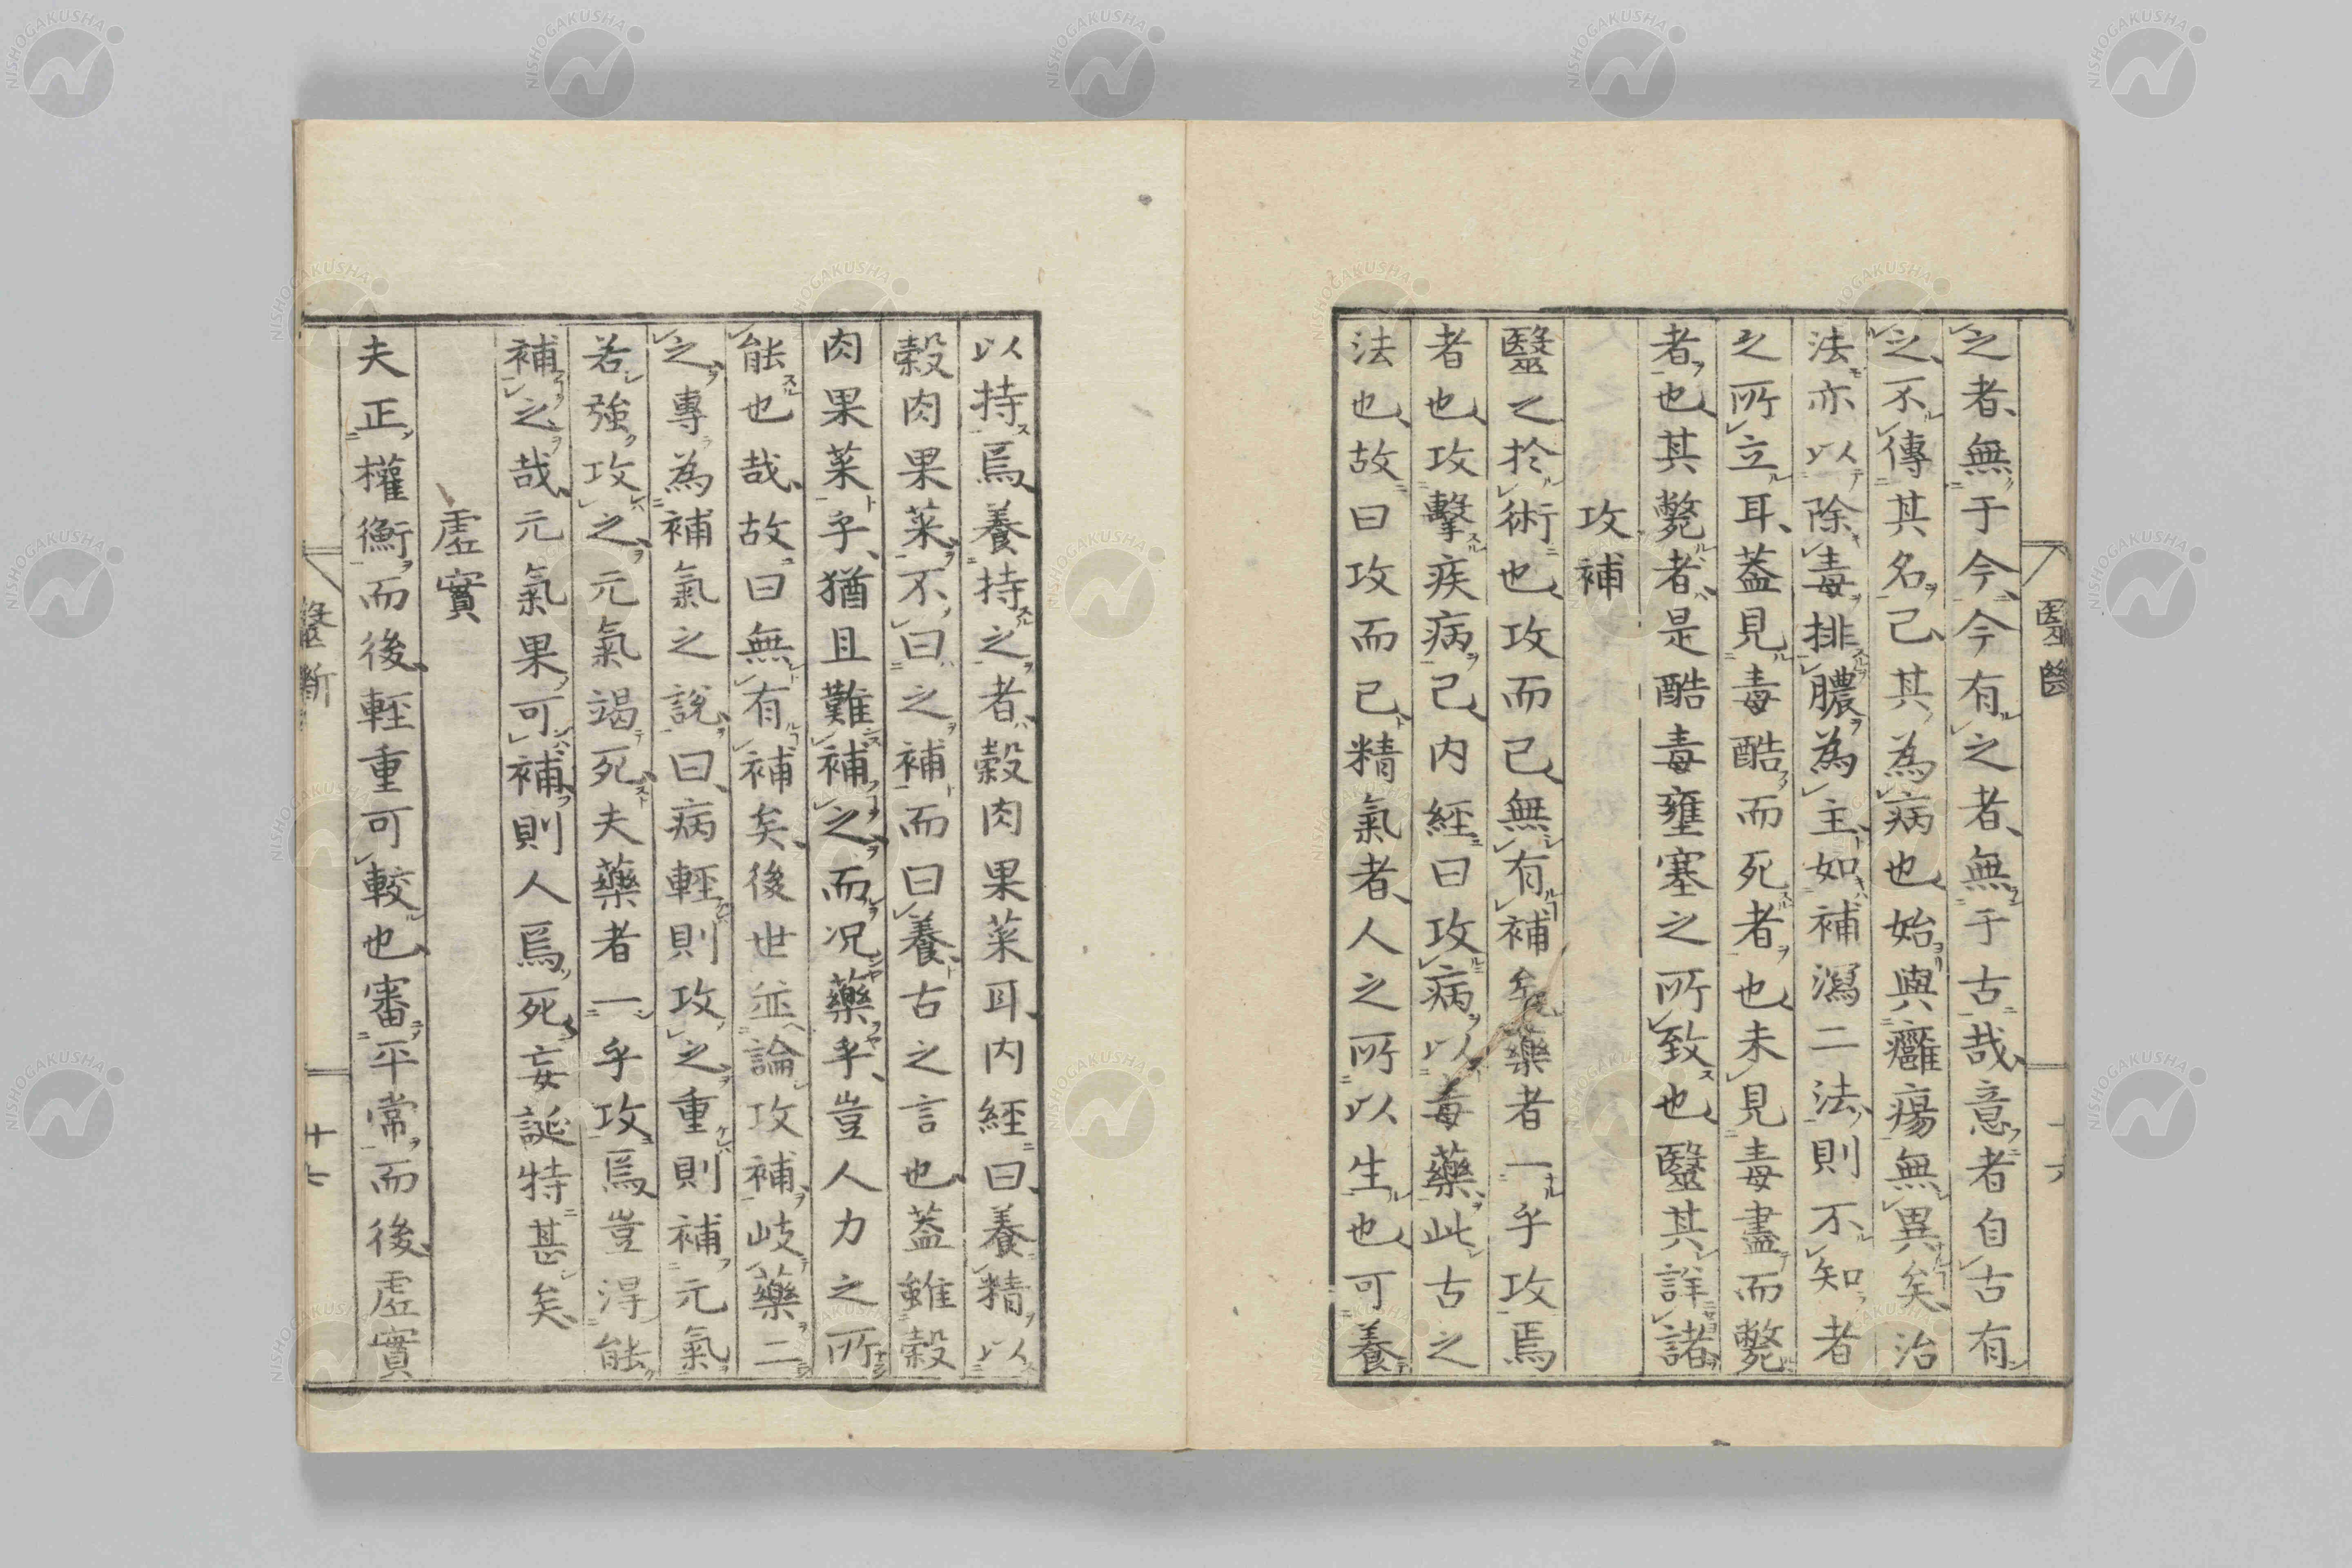 之者無于今今有之者無于古哉意者自古有
之不傳其名已其為病也始與癰瘍無異矣治
法亦以除毒排膿為主如補瀉二法則不知者
之所立耳蓋見毒酷而死者也未見毒盡而斃
者也其斃者是酷毒壅塞之所致也醫其詳諸
攻補
醫之於術也攻而已無有補矣藥者一乎攻焉
者也攻擊疾病已内經曰攻病以毒藥此古之
法也故曰攻而已精氣者人之所以生也可養
以持焉養持之者穀肉果菜耳内經曰養精以
穀肉果菜不曰之補而曰養古之言也蓋雖穀
肉果菜乎猶且難補之而况藥乎豈人力之所
能也哉故曰無有補矣後世並論攻補岐藥二
之專為補氣之說曰病輕則攻之重則補元氣
若強攻之元氣竭死夫藥者一乎攻焉豈淂能
補之哉元氣果可補則人焉死妄誕特甚矣
虛實
夫正權衡而後輕重可較也審平常而後虛實
醫斷
十七
NISHOGAKUSHA